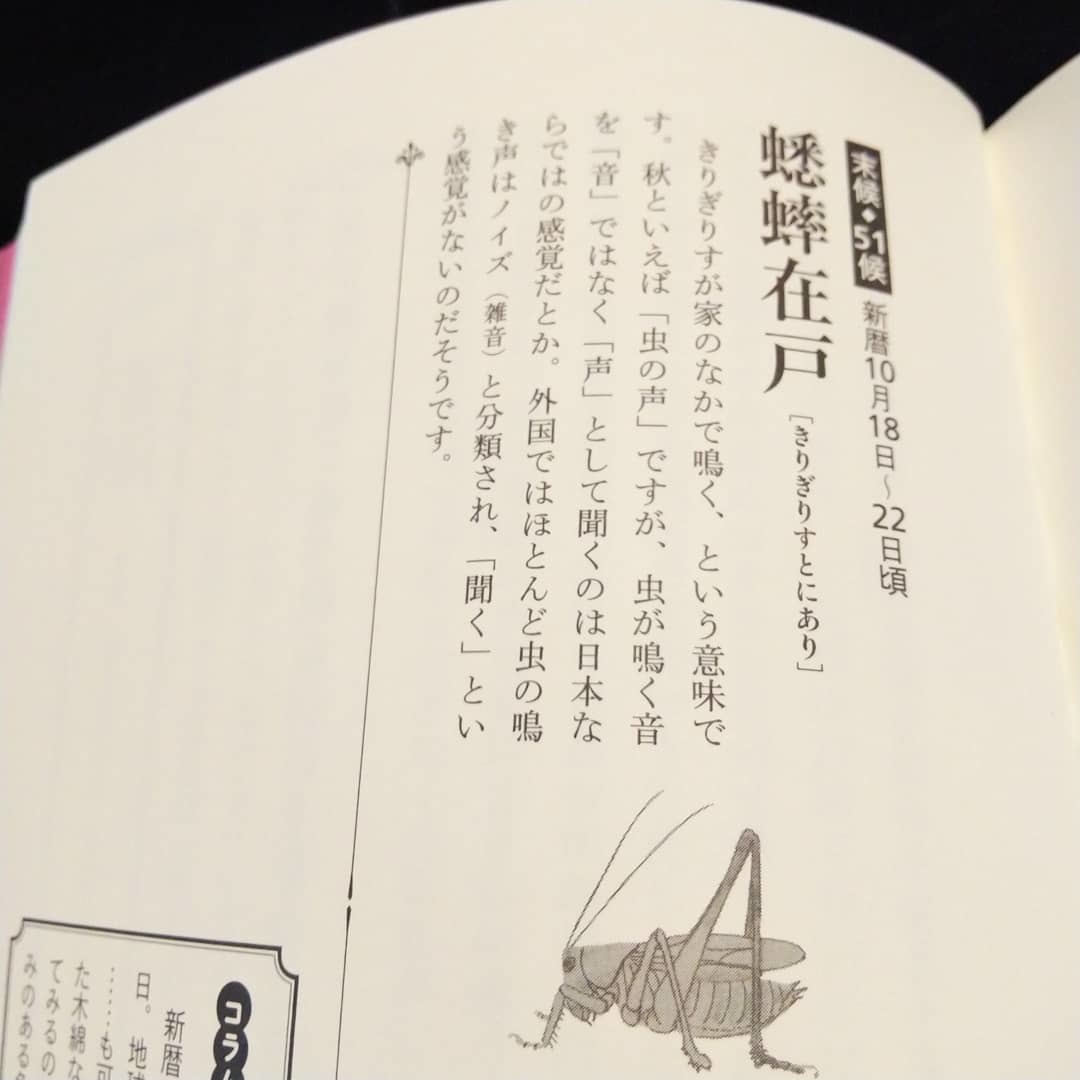 末候◆51候 新暦10月18日〜22日頃
蟋蟀在戸[きりぎりすとにあり]
きりぎりすが家のなかで鳴く、という意味で
す。秋といえば「虫の声」ですが、虫が鳴く音
を「音」ではなく「声」として聞くのは日本な
らではの感覚だとか。外国ではほとんど虫の鳴
き声はノイズ（雑音）と分類され、「聞く」とい
う感覚がないのだそうです。
コラ
新暦
日。地球
……も可
た木綿な
てみるの
みのある